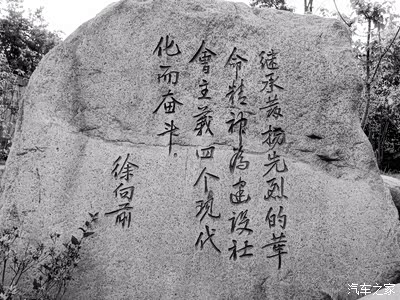 继承发扬先烈的革
命精神为建设社
会主义四个现代
化而奋斗.
徐向前
汽车之家